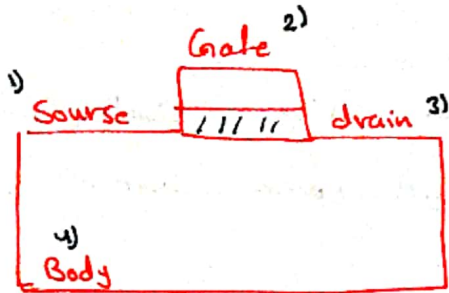 2)
Gate
1)
Sourse
drain 3)
4)
Body